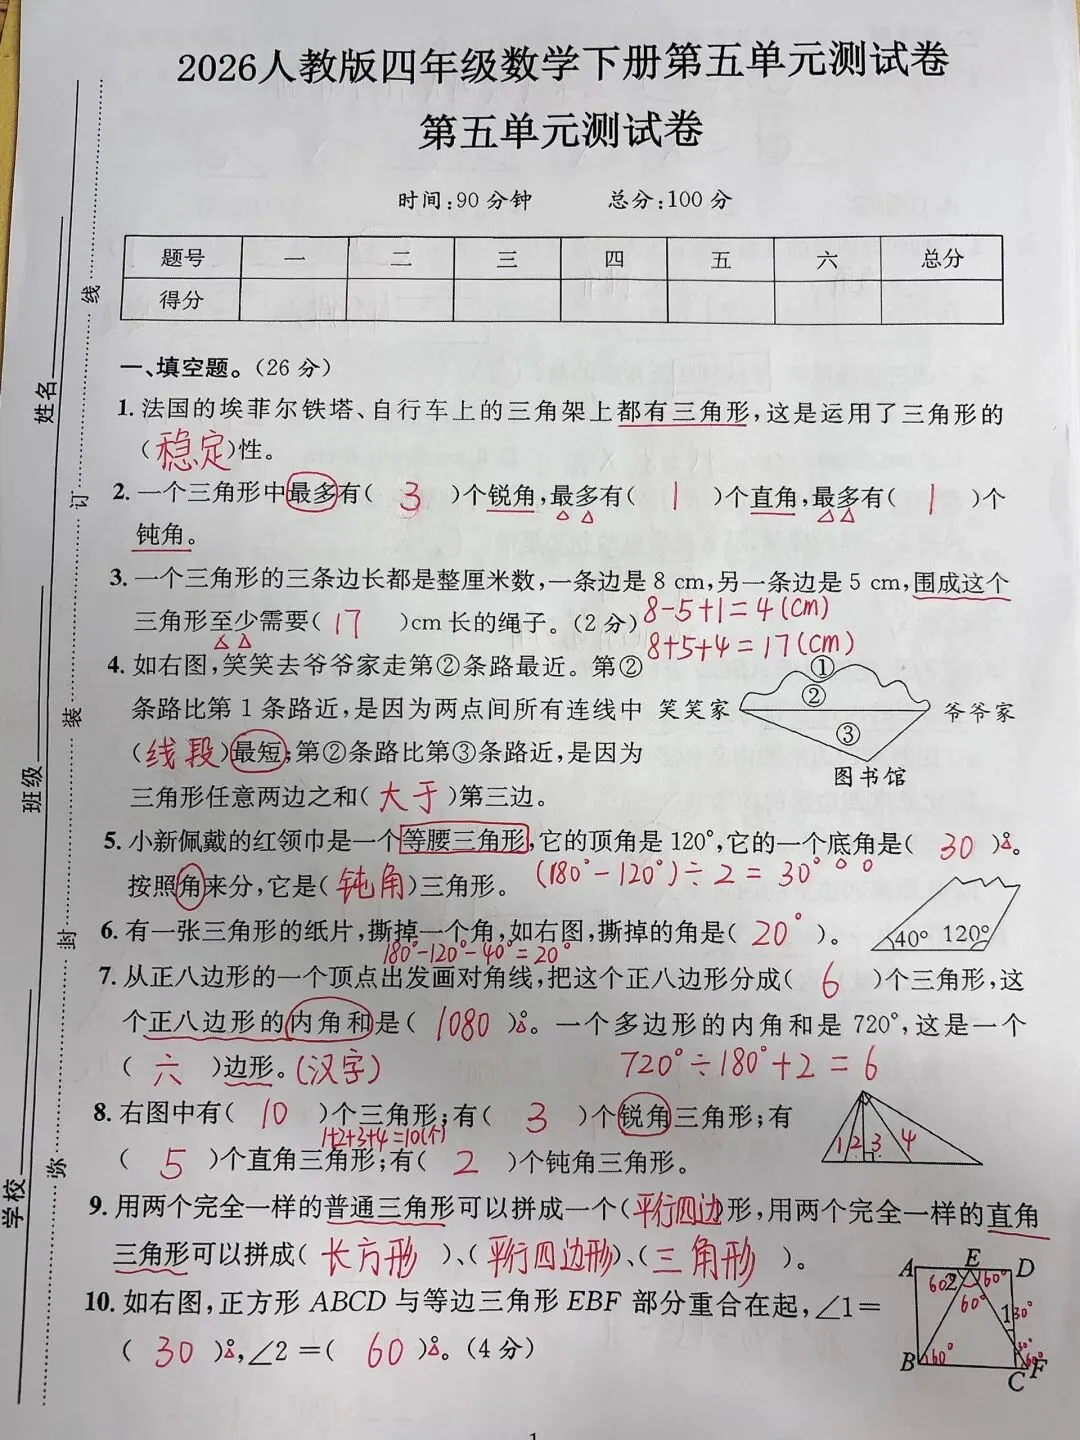 2026人教版四年级数学下册第五单元测试卷
第五单元测试卷
时间:90分钟 总分:100分
题号 一 二 三 四 五 六 总分
得分
一、填空题。(26分)
1. 法国的埃菲尔铁塔、自行车上的三角架上都有三角形,这是运用了三角形的
(稳定)性。
2. 一个三角形中最多有( 3 )个锐角,最多有( 1 )个直角,最多有( 1 )个
钝角。
3. 一个三角形的三条边长都是整厘米数,一条边是8 cm,另一条边是5 cm,围成这个
三角形至少需要( 17 )cm长的绳子。(2分)
8-5+1=4(cm)
8+5+4=17(cm)
4. 如右图,笑笑去爷爷家走第②条路最近。第②
条路比第1条路近,是因为两点间所有连线中
(线段)最短;第②条路比第③条路近,是因为
三角形任意两边之和(大于)第三边。
① ② ③
笑笑家 爷爷家
图书馆
5. 小新佩戴的红领巾是一个等腰三角形,它的顶角是120°,它的一个底角是( 30 )°。
按照角来分,它是(钝角)三角形。
(180°-120°)÷2=30°
6. 有一张三角形的纸片,撕掉一个角,如右图,撕掉的角是( 20° )。
40° 120°
180°-120°-40°=20°
7. 从正八边形的一个顶点出发画对角线,把这个正八边形分成( 6 )个三角形,这
个正八边形的内角和是( 1080 )°。一个多边形的内角和是720°,这是一个
( 六 )边形。(汉字)
720°÷180°+2=6
8. 右图中有( 10 )个三角形;有( 3 )个锐角三角形;有
1+2+3+4=10(个)
( 5 )个直角三角形;有( 2 )个钝角三角形。
1 2 3 4
9. 用两个完全一样的普通三角形可以拼成一个(平行四边)形,用两个完全一样的直角
三角形可以拼成(长方形)、(平行四边形)、(三角形)。
10. 如右图,正方形ABCD与等边三角形EBF部分重合在起,∠1=
( 30 )°,∠2=( 60 )°。(4分)
A E D
60° 2 60°
60°
1 30°
30°
B 60° 60° F
C
学校
班级
姓名
弥 封 装 订 线
1